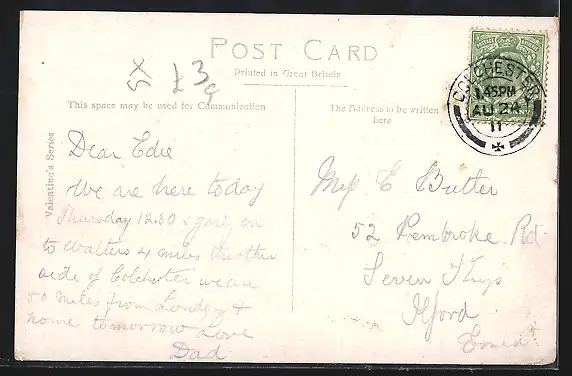 POST CARD
Printed in Great Britain
5X
£3
This space may be used for Communication
The Address to be written
here
Valentine's Series
COLCHESTER
1.45PM
AU 24
11
Dear Edie
We are here today
Thursday 12.30 & going on
to Walters 4 miles the other
side of Colchester we are
50 miles from London &
home tomorrow love
Dad
Miss E Butter
52 Pembroke Rd
Seven Kings
Ilford
Essex